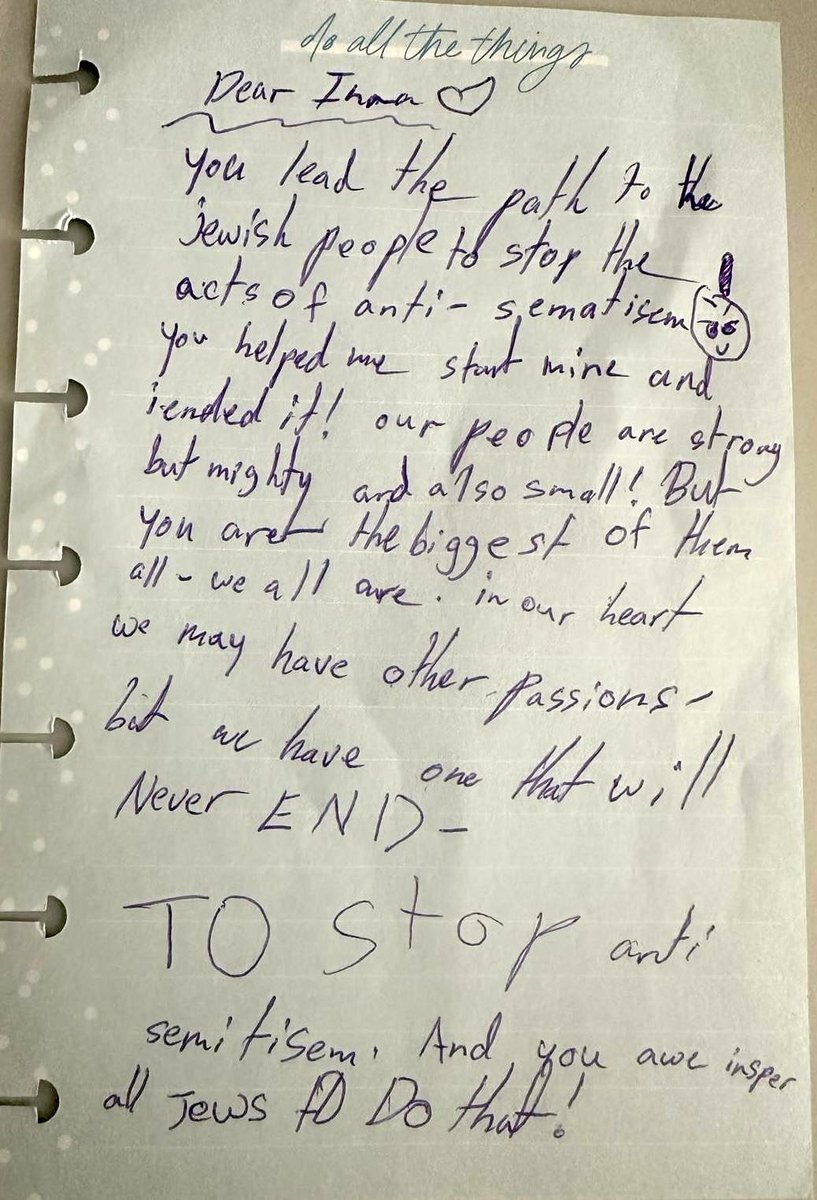 do all the things
Dear Imma
You lead the path to the
jewish people to stop the
acts of anti- sematisem
you helped me start mine and
i ended it! our people are strong
but mighty and also small! But
you are the biggest of them
all - we all are. in our heart
we may have other passions -
but we have one that will
Never END -
TO Stop anti
semitisem. And you awe insper
all Jews TO Do that!